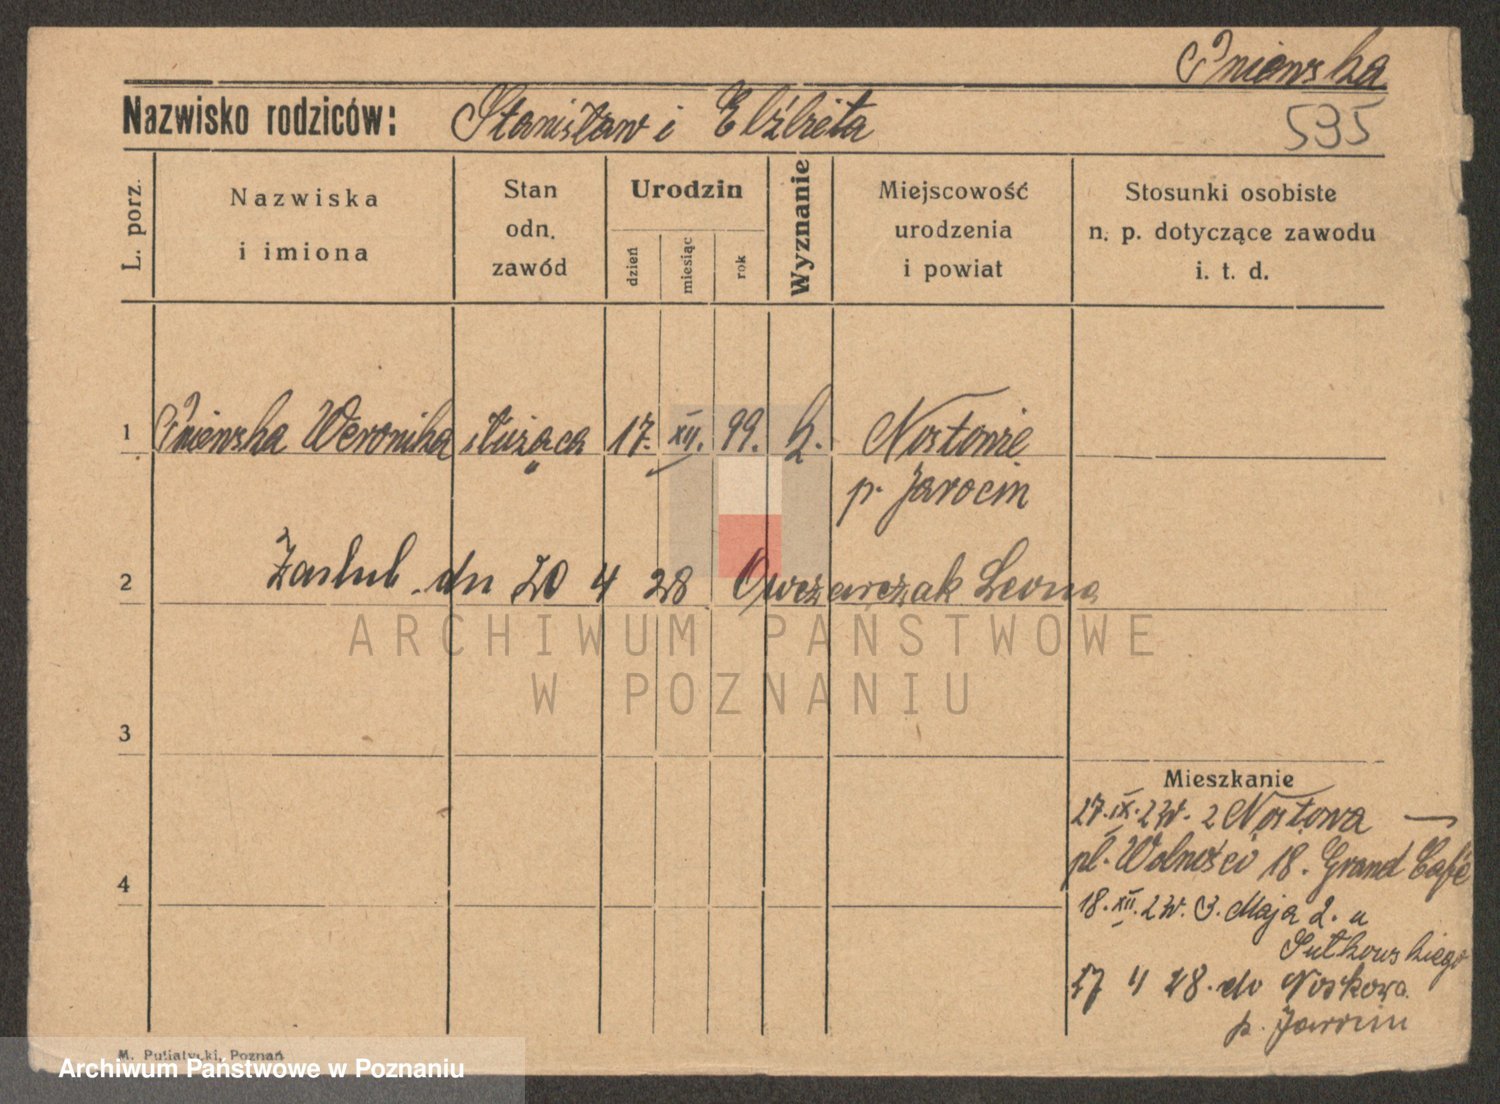 Pniewska
Nazwisko rodziców: Stanisław i Elżbieta
595
L. porz.
Nazwiska
i imiona
Stan
odn.
zawód
Urodzin
dzień
miesiąc
rok
Wyznanie
Miejscowość
urodzenia
i powiat
Stosunki osobiste
n. p. dotyczące zawodu
i. t. d.
1 Pniewska Weronika służąca 17. XII. 99. k. Nostowie
p. Jarocin
2 Zaślub. dn 20 4 28 Owczarczak Leona
ARCHIWUM PAŃSTWOWE
W POZNANIU
3
Mieszkanie
27. IX. 27r. z Nostowa
pl. Wolności 18. Grand Café
4
18. XII. 27r. 3. Maja 2. u
Sutkowskiego
27 4 28. do Noskowa
p. Jarocin
M. Putiatycki, Poznań
Archiwum Państwowe w Poznaniu